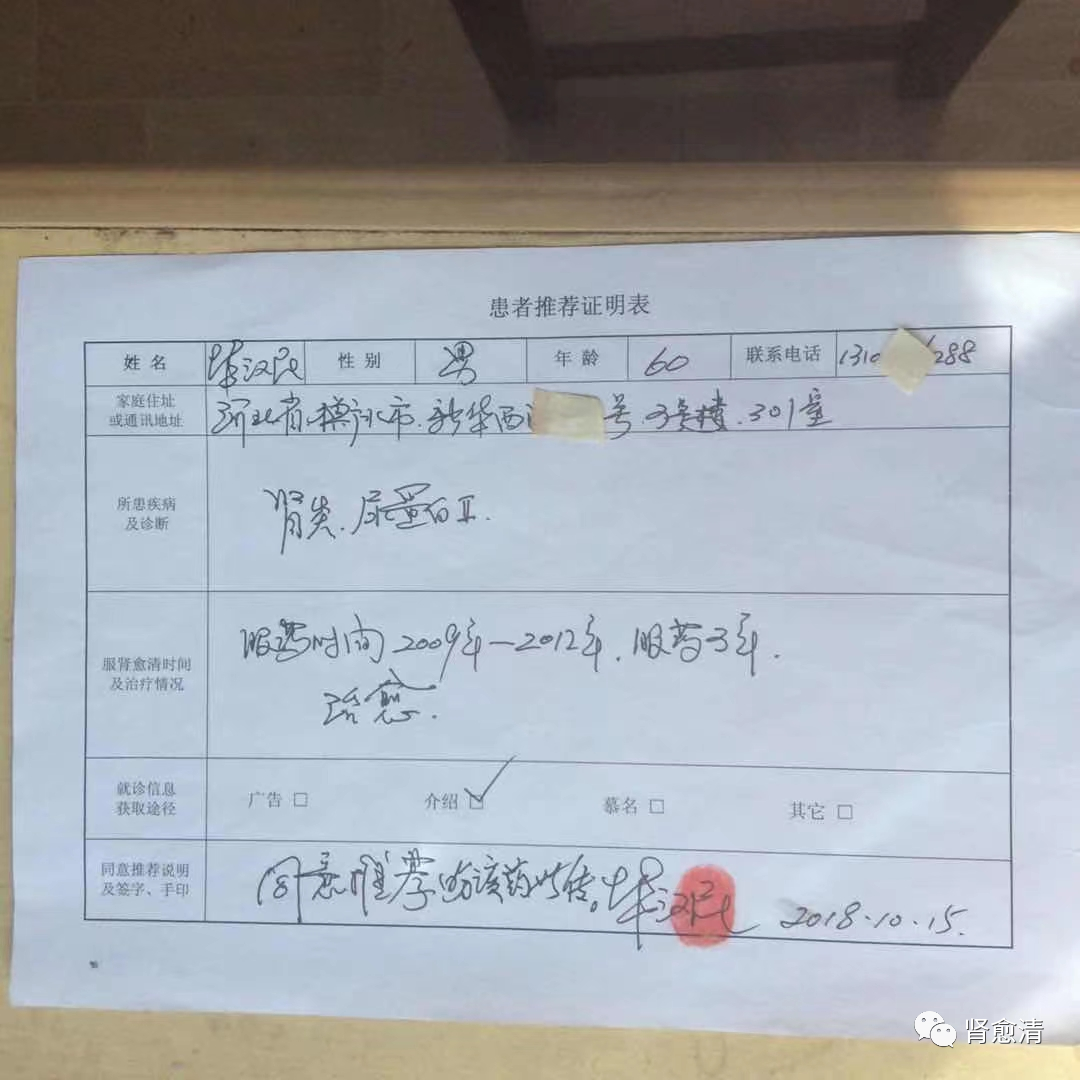 患者推荐证明表
姓名 毕汉民 性别 男 年龄 60 联系电话 1310 288
家庭住址
或通讯地址
河北省 市.新华西 号.3号楼.301室
所患疾病
及诊断
肾炎.尿蛋白II.
服肾愈清时间
及治疗情况
服药时间2009年—2012年.服药3年.
治愈.
就诊信息
获取途径
广告 □ 介绍 ☑ 慕名 □ 其它 □
同意推荐说明
及签字、手印
同意推荐 该药 。毕汉民 2018.10.15.
肾愈清